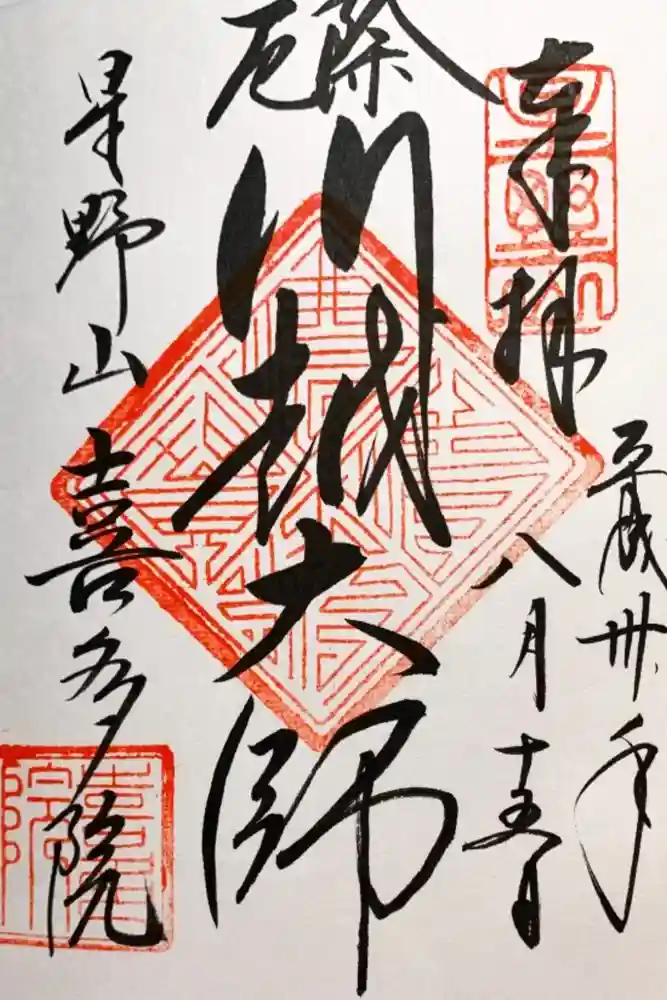 奉拝
平成卅年
八月十五日
厄除
川越大師
星野山
喜多院